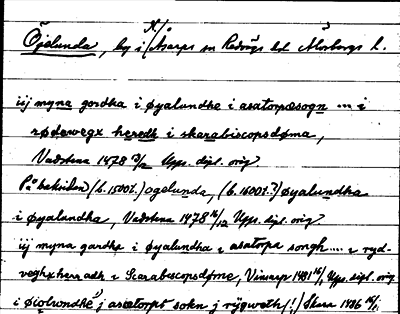 Öjelunda, by i Åsarps sn Redvägs hd Älvsborgs l.
iij myna gordha i øyalundhe i asatorpæsogn ... i
rødewegx heredh i skarabiscopsdøma,
Vadstena 1478 Upps. dipl. orig
På baksidan (b. 1500t.) ogelunda, (b. 1600t.?) øyalundha
i øyalundha, Vadstena 1478 16/12 Upps. dipl. orig
iij myna gardha i øyalundha i asatorpa songh.... i ryd-
veghxherradh i Scarabiscopsdøme, 1481 Upps. dipl. orig
i øiolwndhe j asætorpt sokn j rijgweth(!) Skara 1486